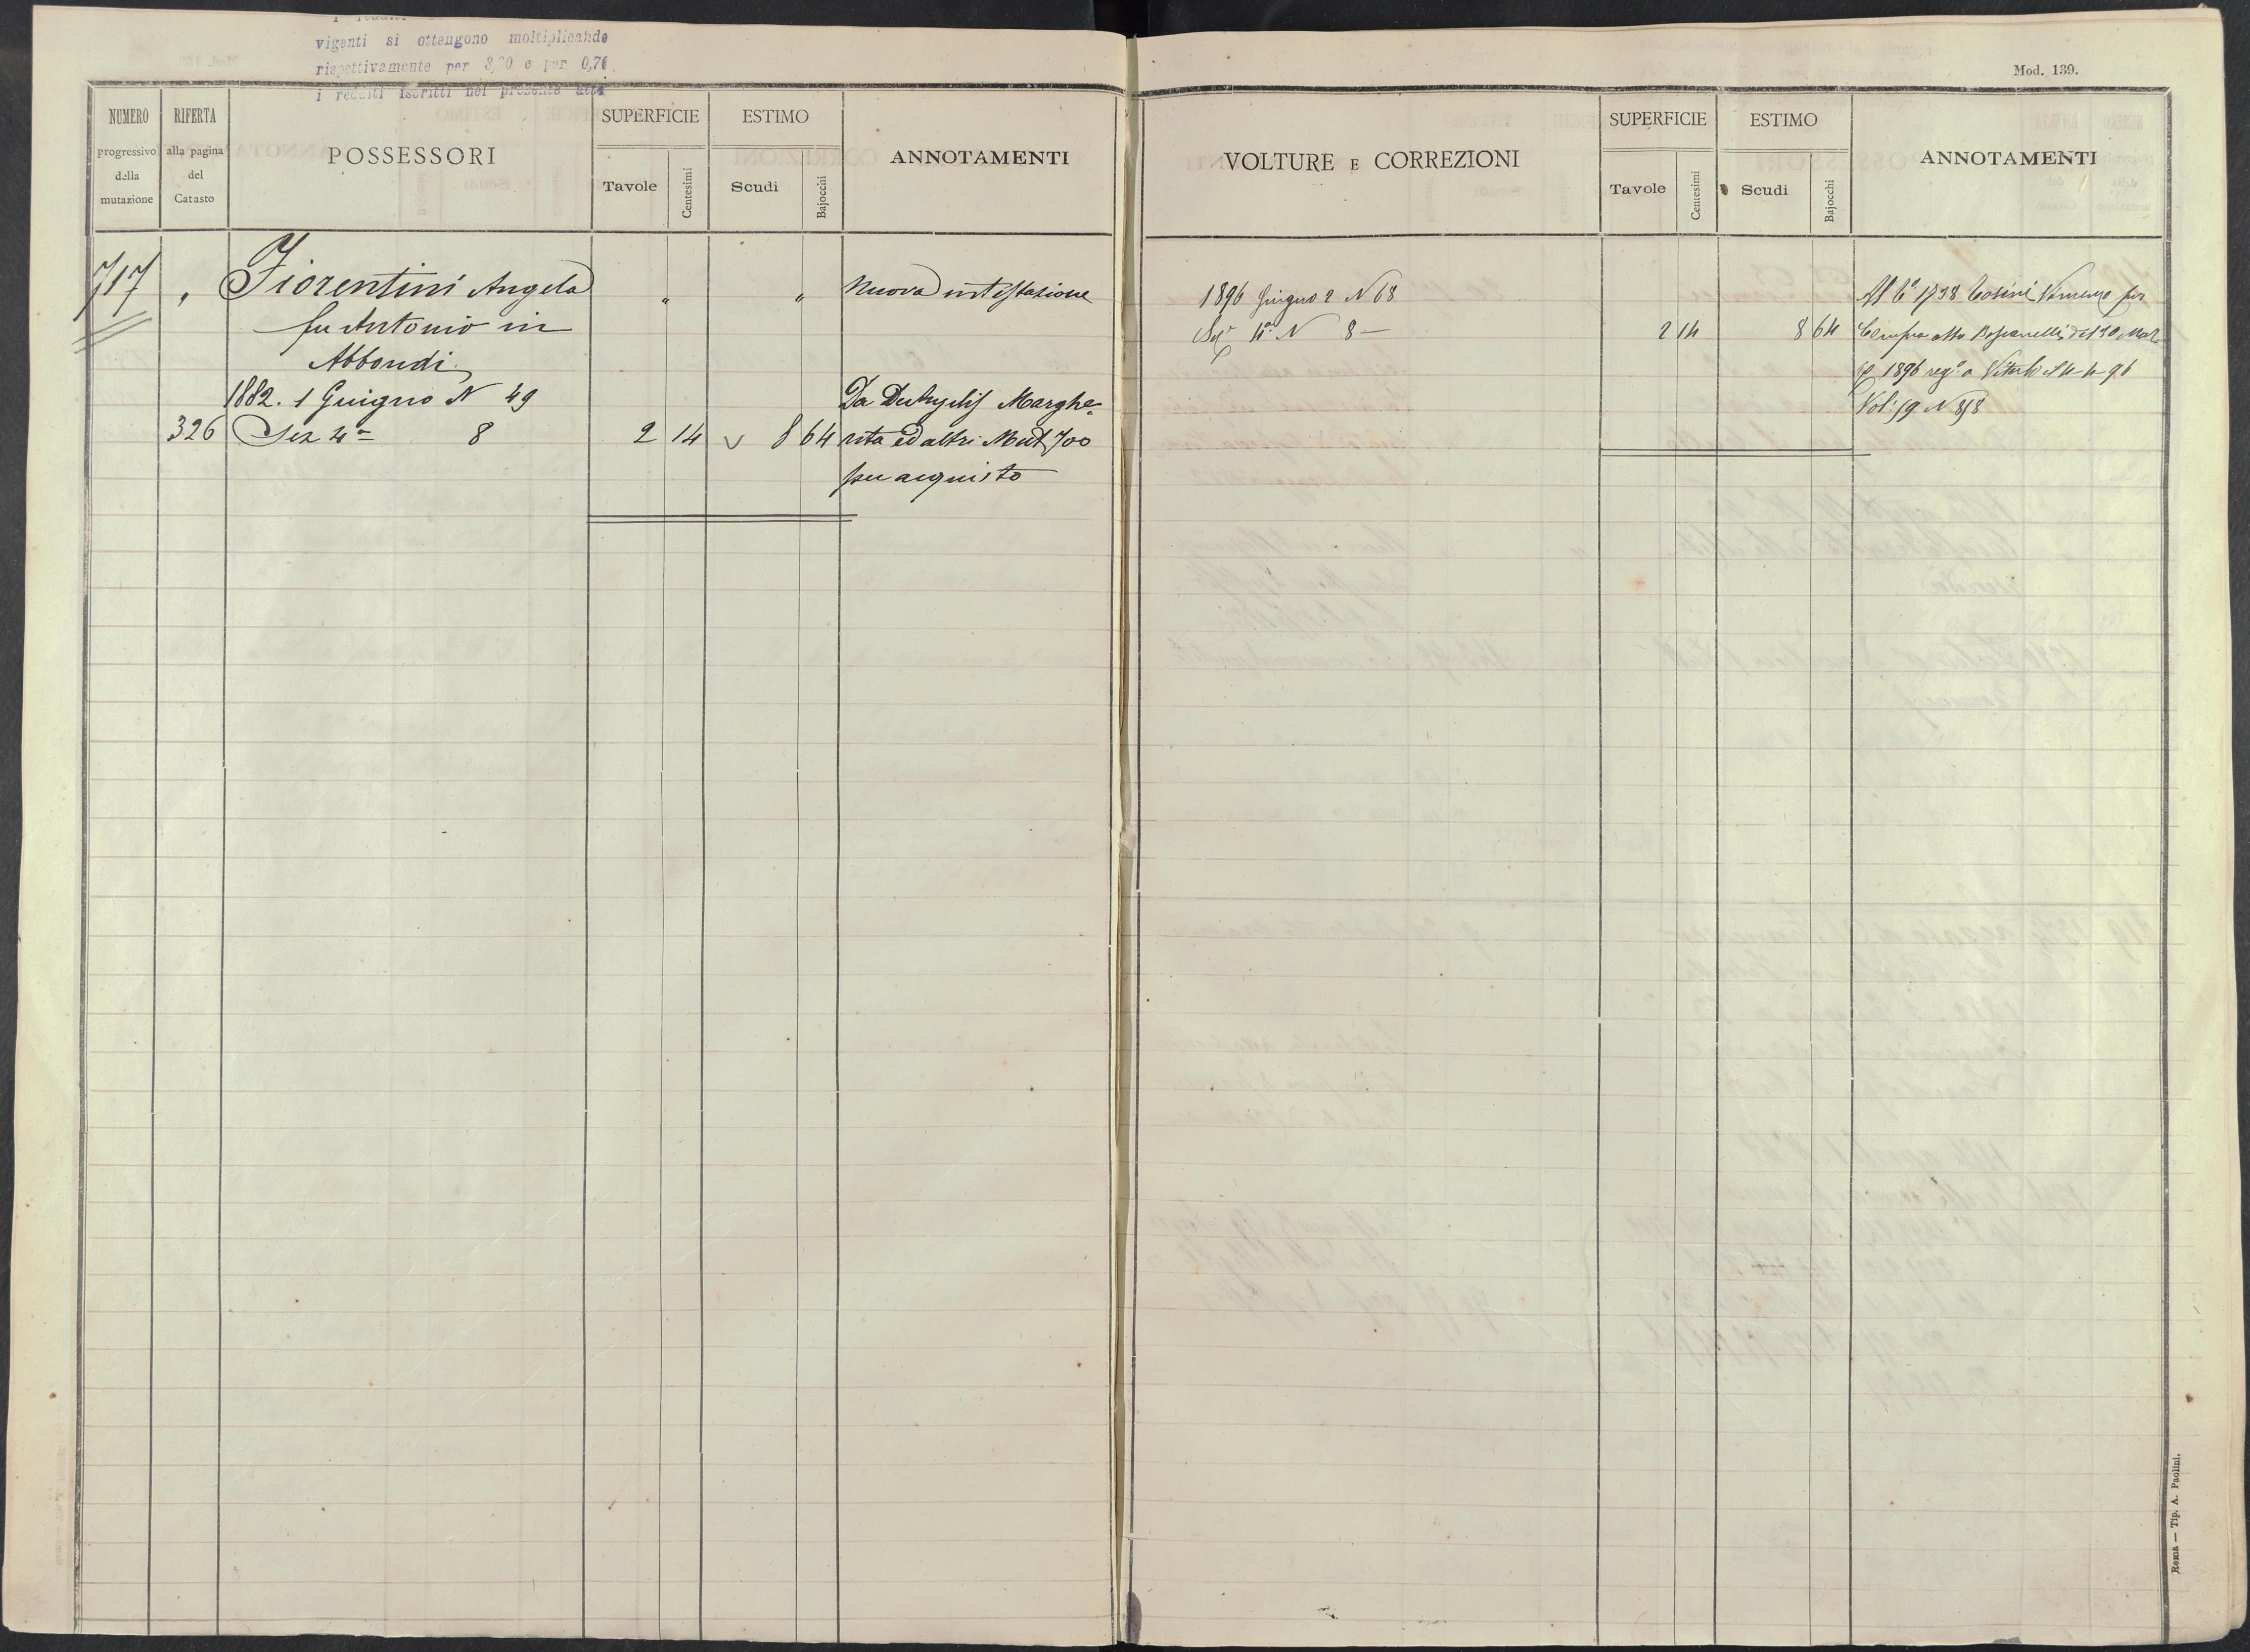 vigenti si ottengono moltiplicando
rispettivamente per 3,20 e per 0,76
i redditi iscritti nel presente atto
NUMERO
progressivo
della
mutazione
RIFERTA
alla pagina
del
Catasto
POSSESSORI
SUPERFICIE
Tavole
Centesimi
ESTIMO
Scudi
Bajocchi
ANNOTAMENTI
717 " Fiorentini Angela " " Nuova intestazione
fu Antonio in
Abbondi
1882. 1 Giugno N 49 Da DeAngelis Marghe=
326 Sez 4a 8 2 14 8 64 rita ed altri Mut 700
per acquisto
Mod. 139.
VOLTURE E CORREZIONI
SUPERFICIE
Tavole
Centesimi
ESTIMO
Scudi
Bajocchi
ANNOTAMENTI
1896 Giugno 2 N 68 Al Co 1738 Cosini Vincenzo per
Sez 4a N 8 — 2 14 8 64 Compra atto del 30
1896 rego a Viterbo 4-4-96
Vol: 59 N 858
Roma — Tip. A. Paolini.